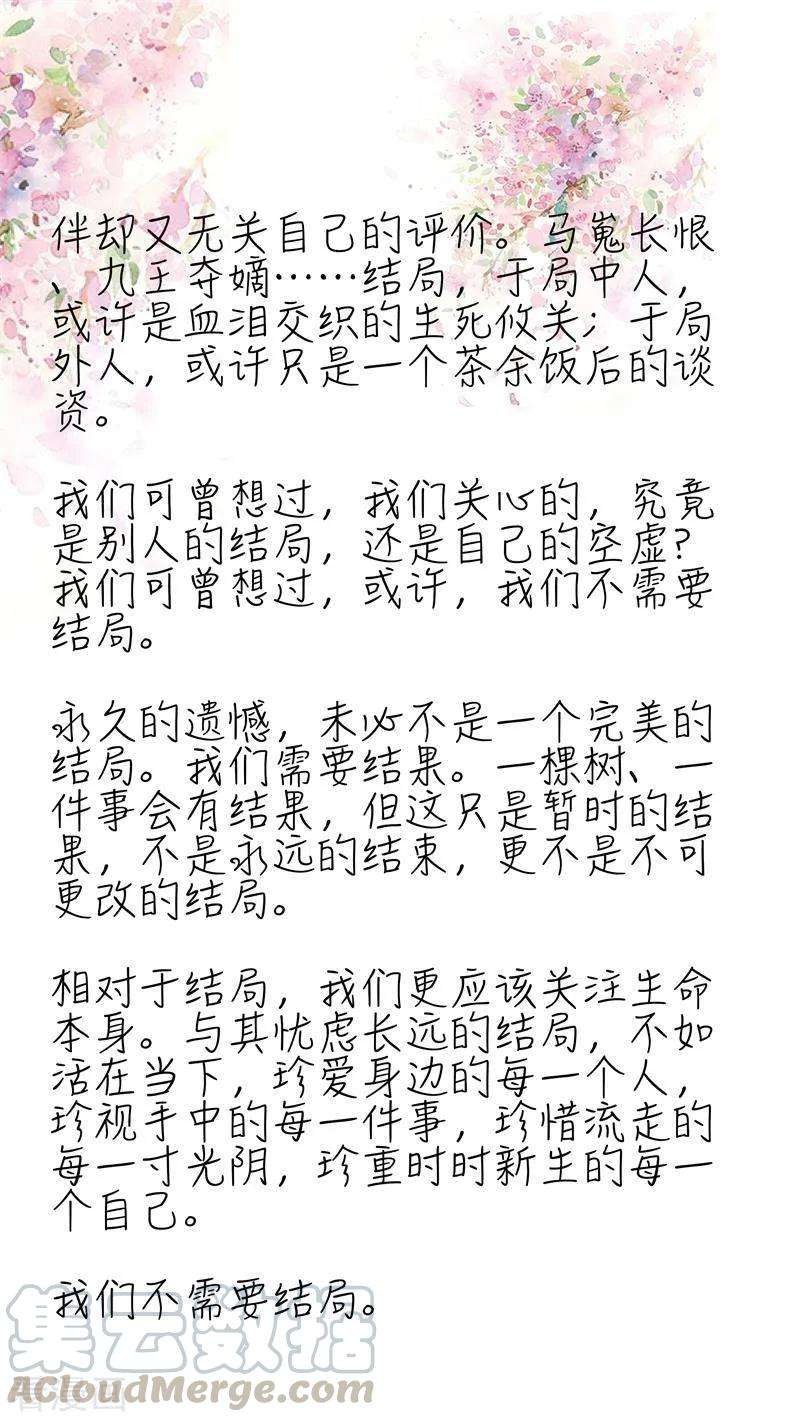 伴却又无关自己的评价。马嵬长恨
、九王夺嫡……结局，于局中人，
或许是血泪交织的生死攸关；于局
外人，或许只是一个茶余饭后的谈
资。
我们可曾想过，我们关心的，究竟
是别人的结局，还是自己的空虚？
我们可曾想过，或许，我们不需要
结局。
永久的遗憾，未必不是一个完美的
结局。我们需要结果。一棵树、一
件事会有结果，但这只是暂时的结
果，不是永远的结束，更不是不可
更改的结局。
相对于结局，我们更应该关注生命
本身。与其忧虑长远的结局，不如
活在当下，珍爱身边的每一个人，
珍视手中的每一件事，珍惜流走的
每一寸光阴，珍重时时新生的每一
个自己。
我们不需要结局。
集云数据
看漫画
ACloudMerge.com